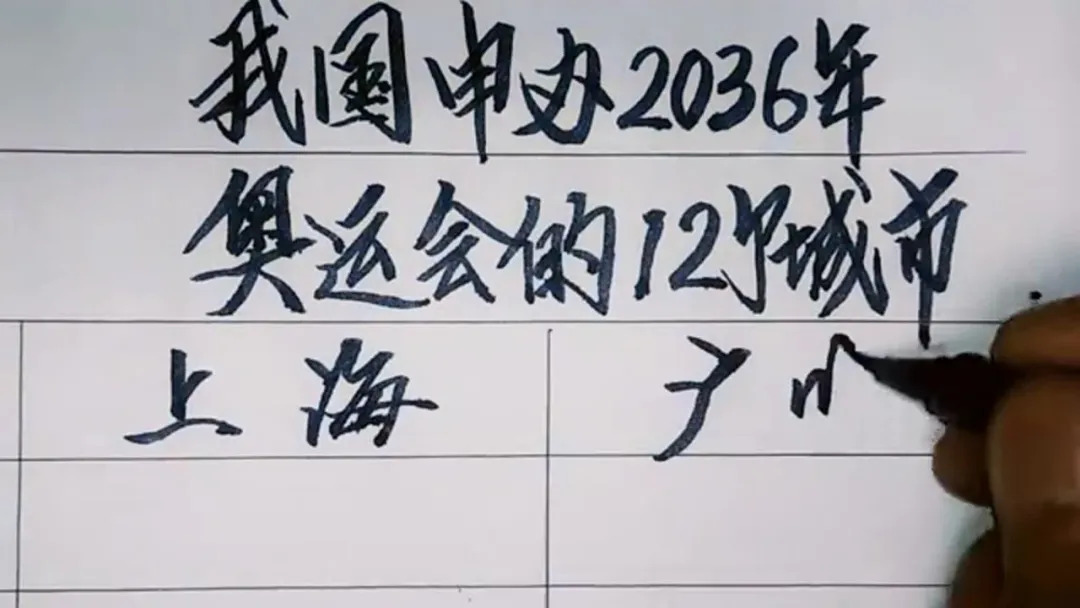 我国申办2036年
奥运会的12个城市
上海
广